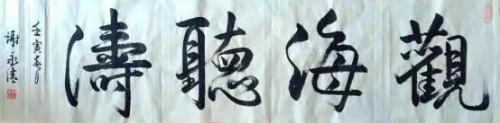 觀海聽濤
壬寅春月
謝永清